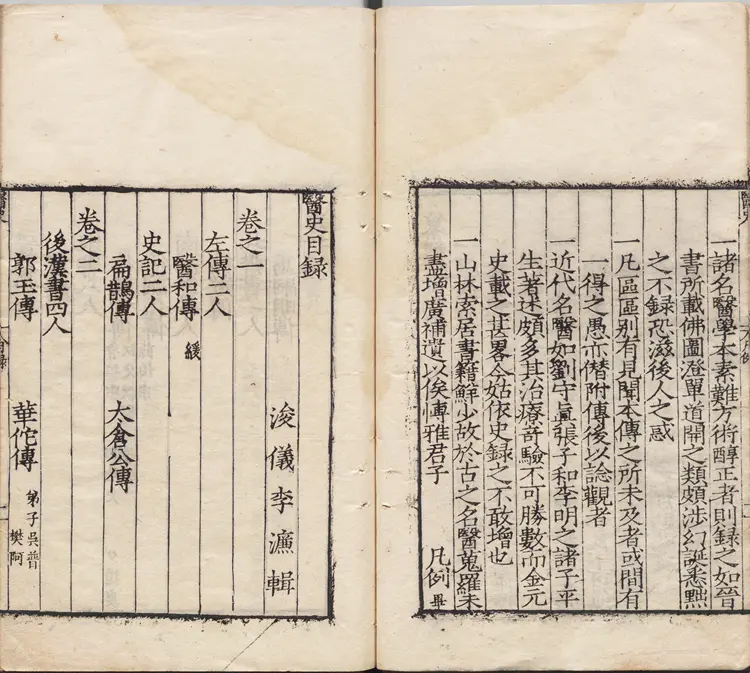 一諸名醫學本素難方術醇正者則録之如晉
書所載佛圖澄單道開之類頗涉幻誕悉黜
之不録恐滋後人之惑
一凡區區别有見聞本傳之所未及者或間有
一得之愚亦僣附傳後以諗觀者
一近代名醫如劉守眞張子和李明之諸子平
生著述頗多其治療奇驗不可勝數而金元
史載之甚畧今姑依史録之不敢增也
一山林索居書籍鮮少故於古之名醫蒐羅未
盡增廣補遺以俟愽雅君子
凡例畢
醫史目録
浚儀李濂輯
卷之一
左傳二人
醫和傳 緩
史記二人
扁鵲傳 太倉公傳
卷之二
後漢書四人
郭玉傳 華佗傳 弟子吳普 樊阿